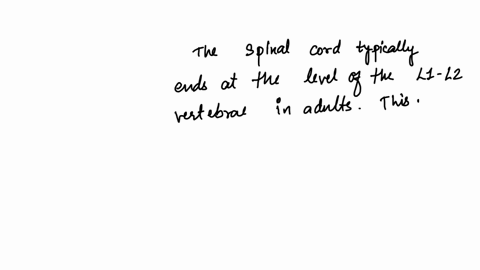 The spinal cord typically
ends at the level of the L1-L2
vertebrae in adults. This